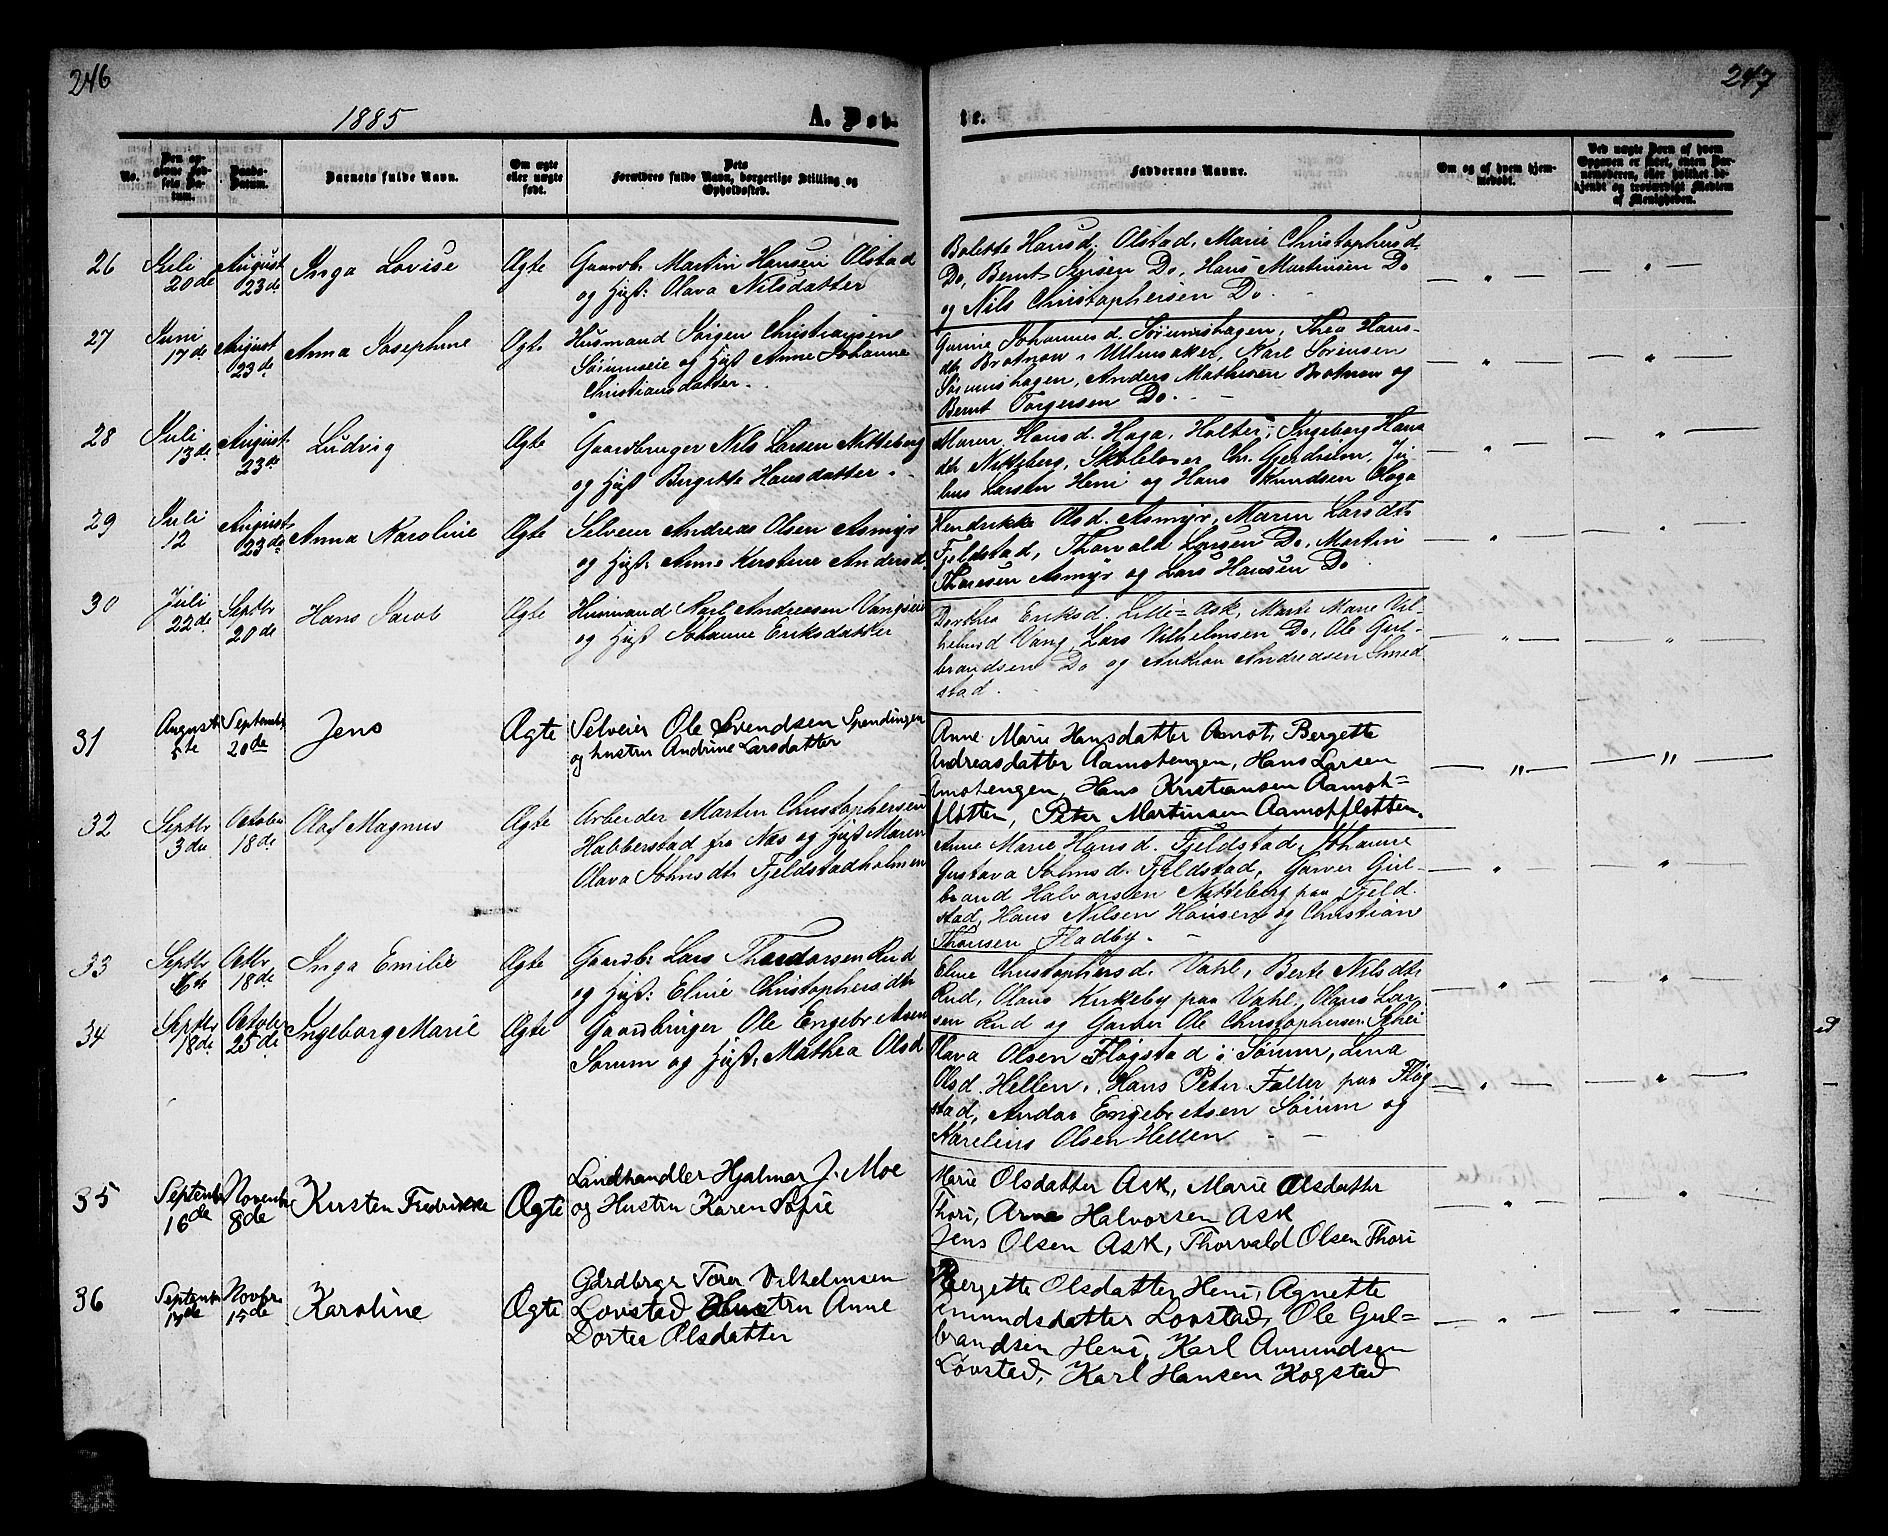 246
247
1885
A. Døt-
tre.
No.
Den op-
givne Fød-
sels Da-
tum.
Daabs-
Datum.
Barnets fulde Navn.
Om ægte
eller uægte
født.
Dets
Forældres fulde Navn, borgerlige Stilling og
Opholdssted.
Faddernes Navne.
Om og af hvem hjem-
medøbt.
Ved uægte Børn af hvem
Opgaven er skeet, enten Bar-
nemoderen, eller hvilket be-
kjendt og troværdigt Medlem
af Menigheden.
26
Juli
20de
August
23de
Inga Lovise
Ægte
Gaardb. Martin Hansen Olstad
og Hust: Olava Nilsdatter
Bolette Hansd. Olstad, Marie Christophersd.
Do, Bernt Jensen Do, Hans Martinsen Do
og Nils Christophersen Do.
27
Juni
17de
August
23de
Anna Josephine
Ægte
Husmand Jørgen Christiansen
Sørumseie og Hust Anne Johanne
Christiansdatter.
Gurine Johannesd. Sørumshagen, Thea Hans-
dtr Brotnow i Ullensaker, Karl Sørensen
Sørumshagen, Anders Mathisen Brotnow og
Bernt Torgersen Do.
28
Juli
13de
August
23de
Ludvig
Ægte
Gaardbruger Nils Larsen Nitteberg
og Hust Birgitte Hansdatter.
Maren Hansd. Haga, Holter, Ingeborg Hans
dtr Nitteberg, Skolelærer Chr. Gjerdrum, Ju-
lius Larsen Heni og Hans Knudsen Haga
29
Juli
12
August
23de
Anna Karoline
Ægte
Selveier Andreas Olsen Asmyr
og Hust. Anne Kirstine Andersd
Hendrikke Olsd. Asmyr, Maren Larsdtr
Fjeldstad, Thorvald Larsen Do, Martin
Thoresen Asmyr og Lars Hansen Do
30
Juli
22de
Septbr
20de
Hans Jacob
Ægte
Husmand Karl Andreasen Vangseie
og Hust Johanne Eriksdatter
Dorthea Eriksd. Lille-Ask, Marte Marie Vil-
helmsd Vang, Lars Vilhelmsen Do, Ole Gul-
brandsen Do og Anton Andreasen Smed
stad.
31
August
5te
Septembr
20de
Jens
Ægte
Selveier Ole Svendsen Spendingen
og hustru Andrine Larsdatter
Anne Marie Hansdatter Amot, Bergette
Andreasdatter Aamotengen, Hans Larsen
Amotengen, Hans Kristiansen Aamot=
fløtten, Peter Martinsen Aamotfløtten.
32
Septbr
3die
October
18de
Olaf Magnus
Ægte
Arbeider Martin Christophersen
Habberstad fra Næs og Hust Maren
Olava Johnsdtr Fjeldstadholmen
Anne Marie Hansd. Fjeldstad, Johanne
Gustava Johnsd. Fjeldstad, Garver Gul-
brand Halvorsen Nitteberg paa Fjeld-
stad, Hans Nilsen Hansen og Christian
Thoresen Fladby.
33
Septbr
6te
Octbr
18de
Inga Emilie
Ægte
Gaardb. Lars Theodorsen Rud
og Hust: Eline Christophersdtr
Eline Christophersd. Vahl, Berte Nilsdtr
Rud, Olaus Kirkeby paa Vahl, Olaus Lar-
sen Rud og Garver Ole Christophersen
34
Septbr
18de
October
25de
Ingeborg Marie
Ægte
Gaardbruger Ole Engebretsen
Sørum og Hust. Mathea Olsd
Olava Olsen Fløgstad i Sørum, Lina
Olsd. Hellen, Hans Peter Falter paa Fløg
stad, Andor Engebretsen Sørum og
Karelius Olsen Hellen
35
Septembr
16de
Novembr
8de
Kirsten Fredrikke
Ægte
Landhandler Hjalmar J. Moe
og Hustru Karen Sofie
Marie Olsdatter Ask, Marie Olsdatter
Thori, Arne Halvorsen Ask
Jens Olsen Ask, Thorvald Olsen Thori
36
Septembr
17de
Novbr.
15de
Karoline
Ægte
Gardbrgr Torer Vilhelmsen
Lovstad Hustru Anne
Dortea Olsdatter
Bergette Olsdatter Heni, Agnette
Amundsdatter Lovstad, Ole Gul=
brandsen Heni, Karl Amundsen
Løvstad, Karl Hansen Kogstad